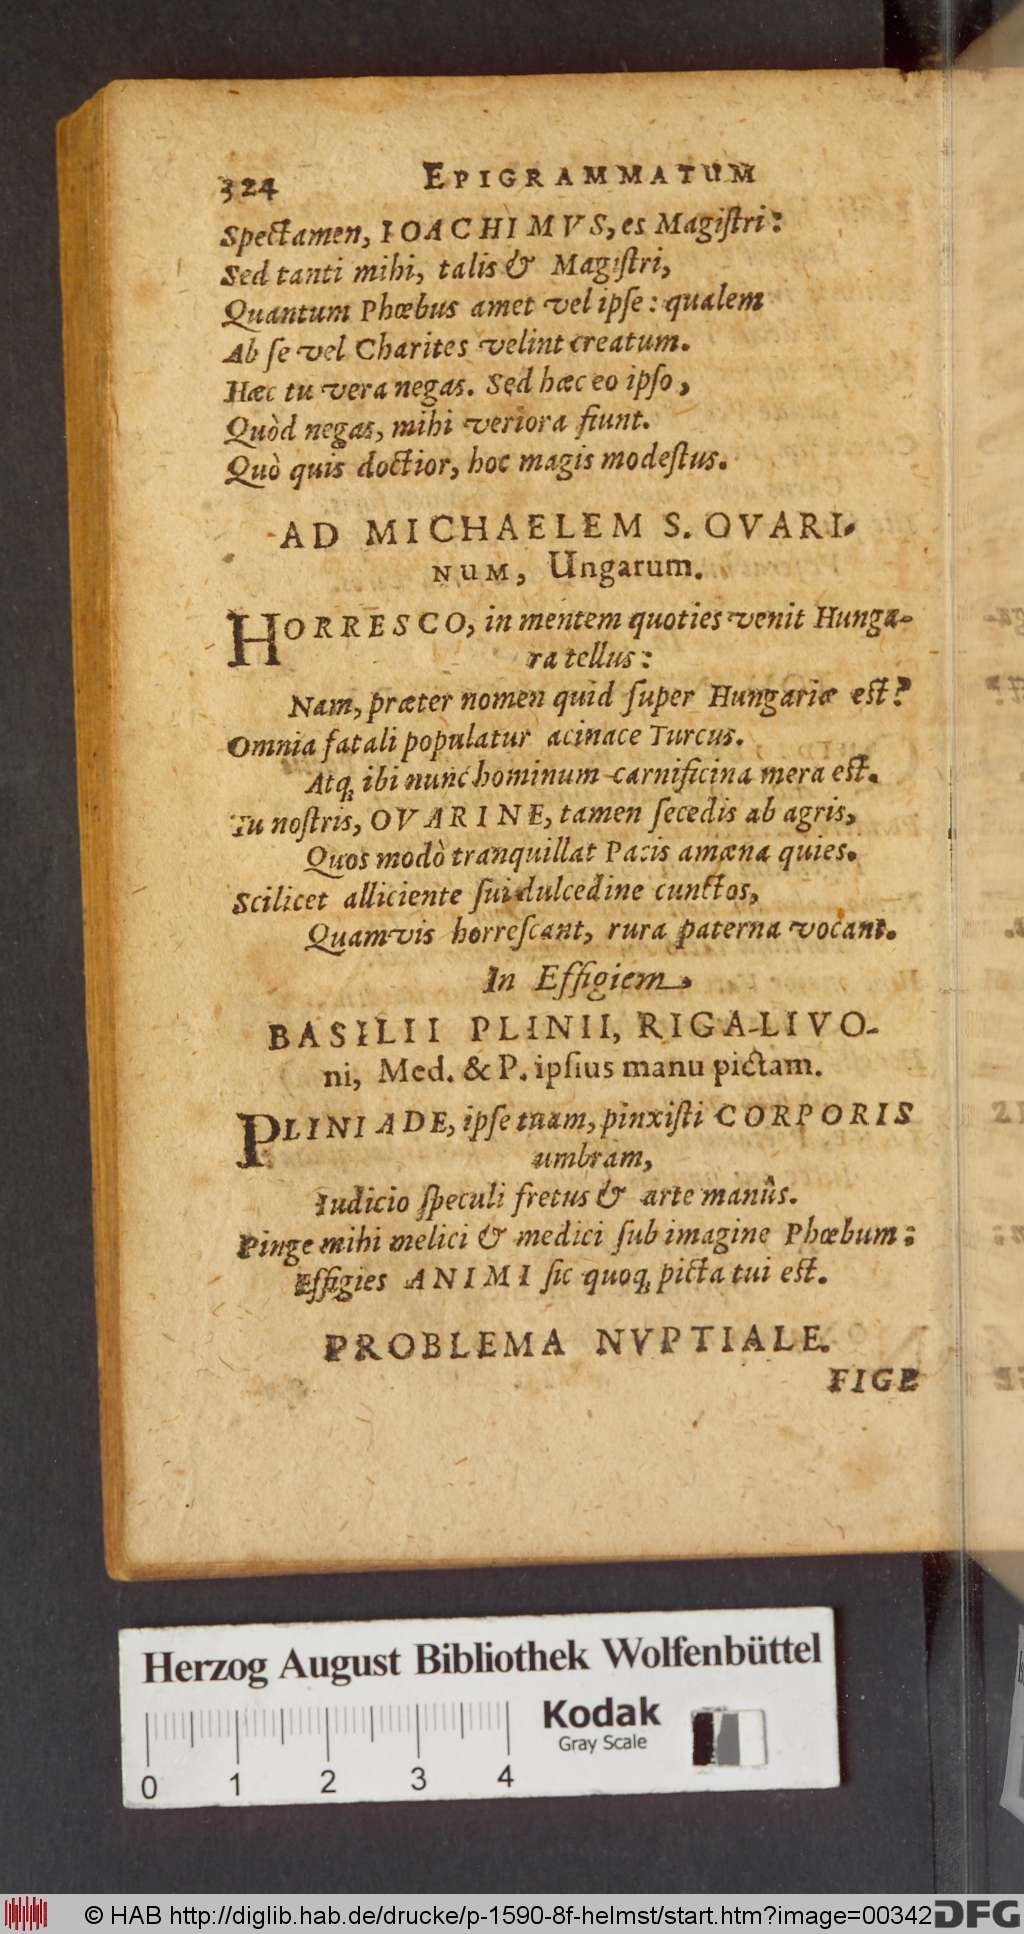 324 EPIGRAMMATUM
Spectamen, IOACHIMVS, es Magiſtri:
Sed tanti mihi, talis & Magiſtri,
Quantum Phœbus amet vel ipſe: qualem
Ab ſe vel Charites velint creatum.
Hæc tu vera negas. Sed hæc eo ipſo,
Quòd negas, mihi veriora fiunt.
Quò quis doctior, hoc magis modeſtus.
AD MICHAELEM S. OVARI-
NUM, Ungarum.
HORRESCO, in mentem quoties venit Hunga-
ra tellus:
Nam, præter nomen quid ſuper Hungariæ eſt?
Omnia fatali populatur acinace Turcus.
Atq; ibi nunc hominum carnificina mera eſt.
Tu noſtris, OVARINE, tamen ſecedis ab agris,
Quos modò tranquillat Pacis amœna quies.
Scilicet alliciente ſui dulcedine cunctos,
Quamvis horreſcant, rura paterna vocant.
In Effigiem,
BASILII PLINII, RIGA-LIVO-
ni, Med. & P. ipſius manu pictam.
PLINIADE, ipſe tuam, pinxiſti CORPORIS
umbram,
Iudicio ſpeculi fretus & arte manûs.
Pinge mihi melici & medici ſub imagine Phœbum:
Effigies ANIMI ſic quoq; picta tui eſt.
PROBLEMA NVPTIALE.
FIGE
Herzog August Bibliothek Wolfenbüttel
Kodak
Gray Scale
0 1 2 3 4
© HAB http://diglib.hab.de/drucke/p-1590-8f-helmst/start.htm?image=00342
DFG